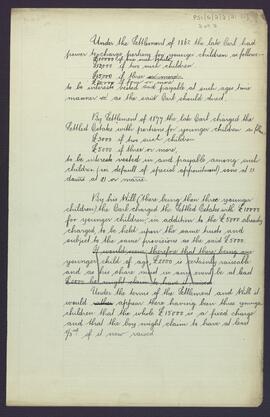 Under the Settlement of 1862 the late Earl had
power to charge portions for younger children as follows:-
£10000 if two such
£12000 if two such children
£15000 if three
if four or more.
to be interests vested and payable at such ages and
manner as the said Earl should direct.
By Settlement of 1877 the late Earl charged the
Settled Estates with portions for younger children as
£3000 if two such children
£5000 if three or more.
to be interests vested in and payable among such
children (in default of special appointment), sons at 21
daurs at 21 or marre.
By his Will (there being then three younger
children) the Earl charged the Settled Estates with £10000
for younger children, in addition to the £5000 already
charged, to be held upon the same trusts and
subject to the same provisions as the said £5000.
It would seem therefore that there being one
younger child of age, £5000 is certainly raisable
and as his share must in any event be at least
might claim to have it raised
Under the terms of the Settlement and Will it
would appear there having been three younger
children that the whole £15000 is a fixed charge
and that the boy might claim to have at least
if now raised